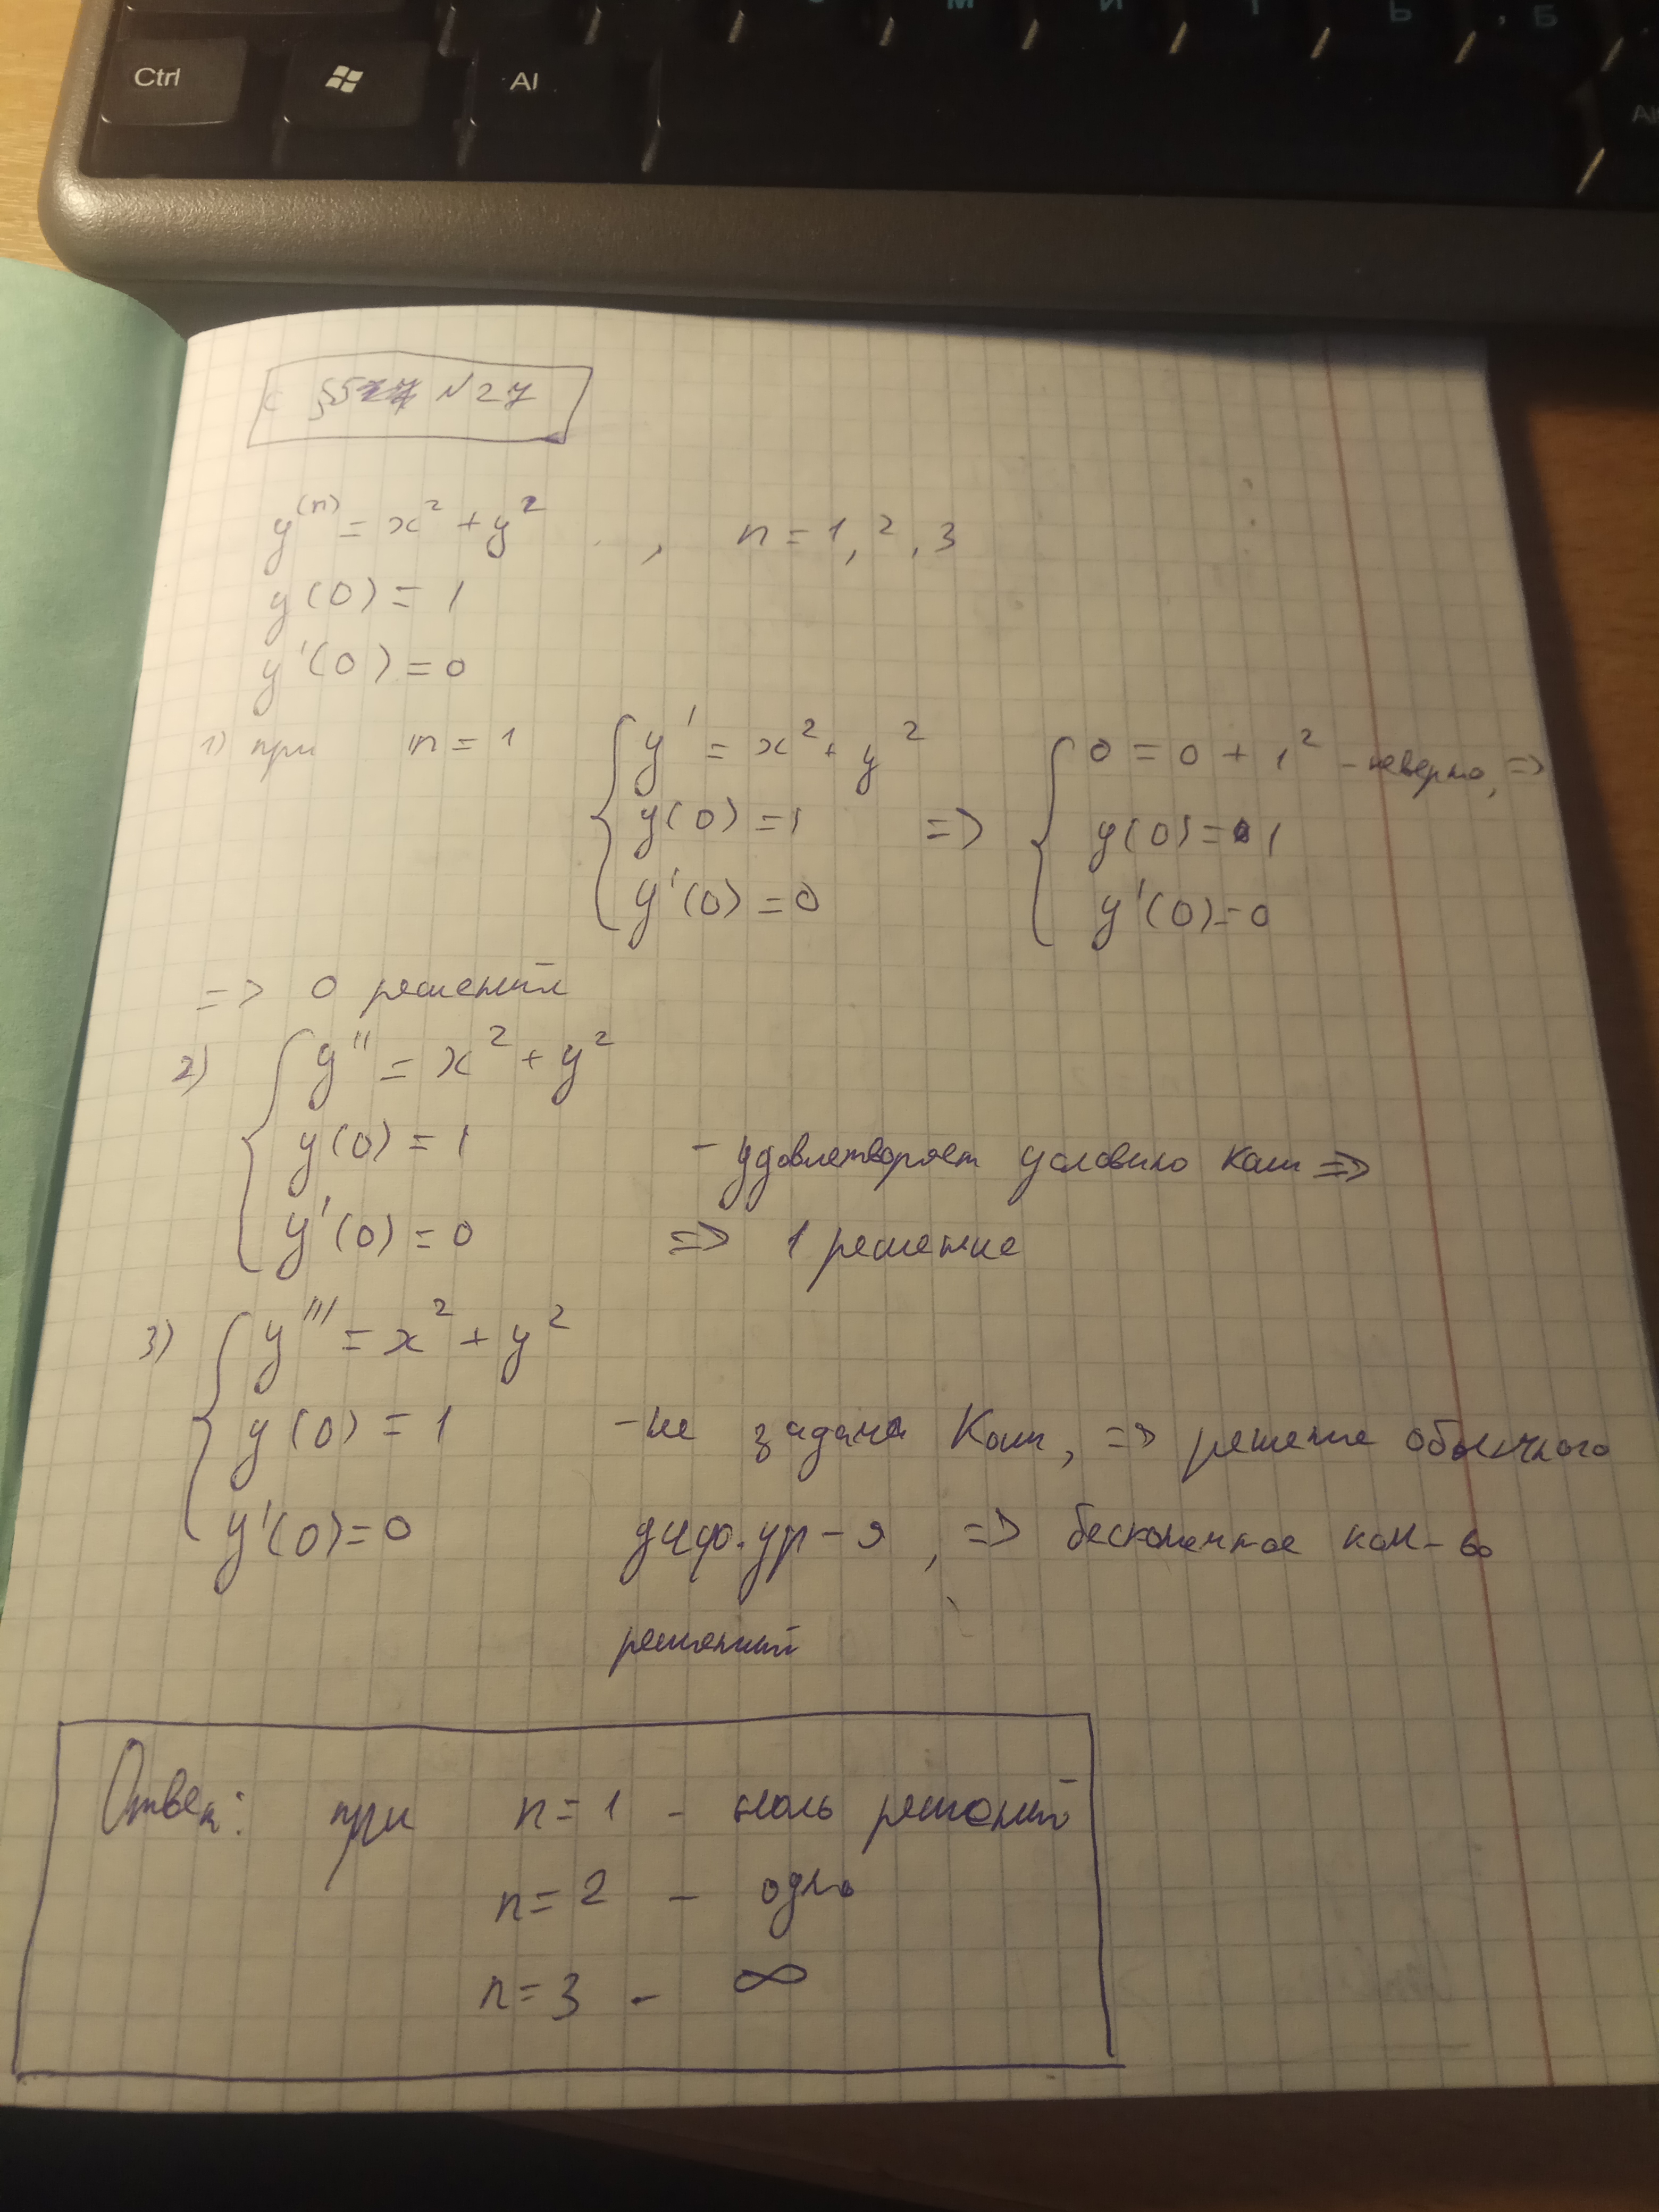 М И Т Ь , Б
Ctrl Al
§5 N27
y⁽ⁿ⁾ = x² + y² , n = 1, 2, 3
y(0) = 1
y'(0) = 0
1) при n = 1 { y' = x² + y² { 0 = 0 + 1² - неверно, =>
y(0) = 1 => y(0) = 1
y'(0) = 0 y'(0) = 0
=> 0 решений
2) { y'' = x² + y²
y(0) = 1 - удовлетворяет условию Коши =>
y'(0) = 0 => 1 решение
3) { y''' = x² + y²
y(0) = 1 - не задача Коши, => решение обычного
y'(0) = 0 диф. ур-я, => бесконечное кол-во
решений
Ответ: при n = 1 - ноль решений
n = 2 - одно
n = 3 - ∞